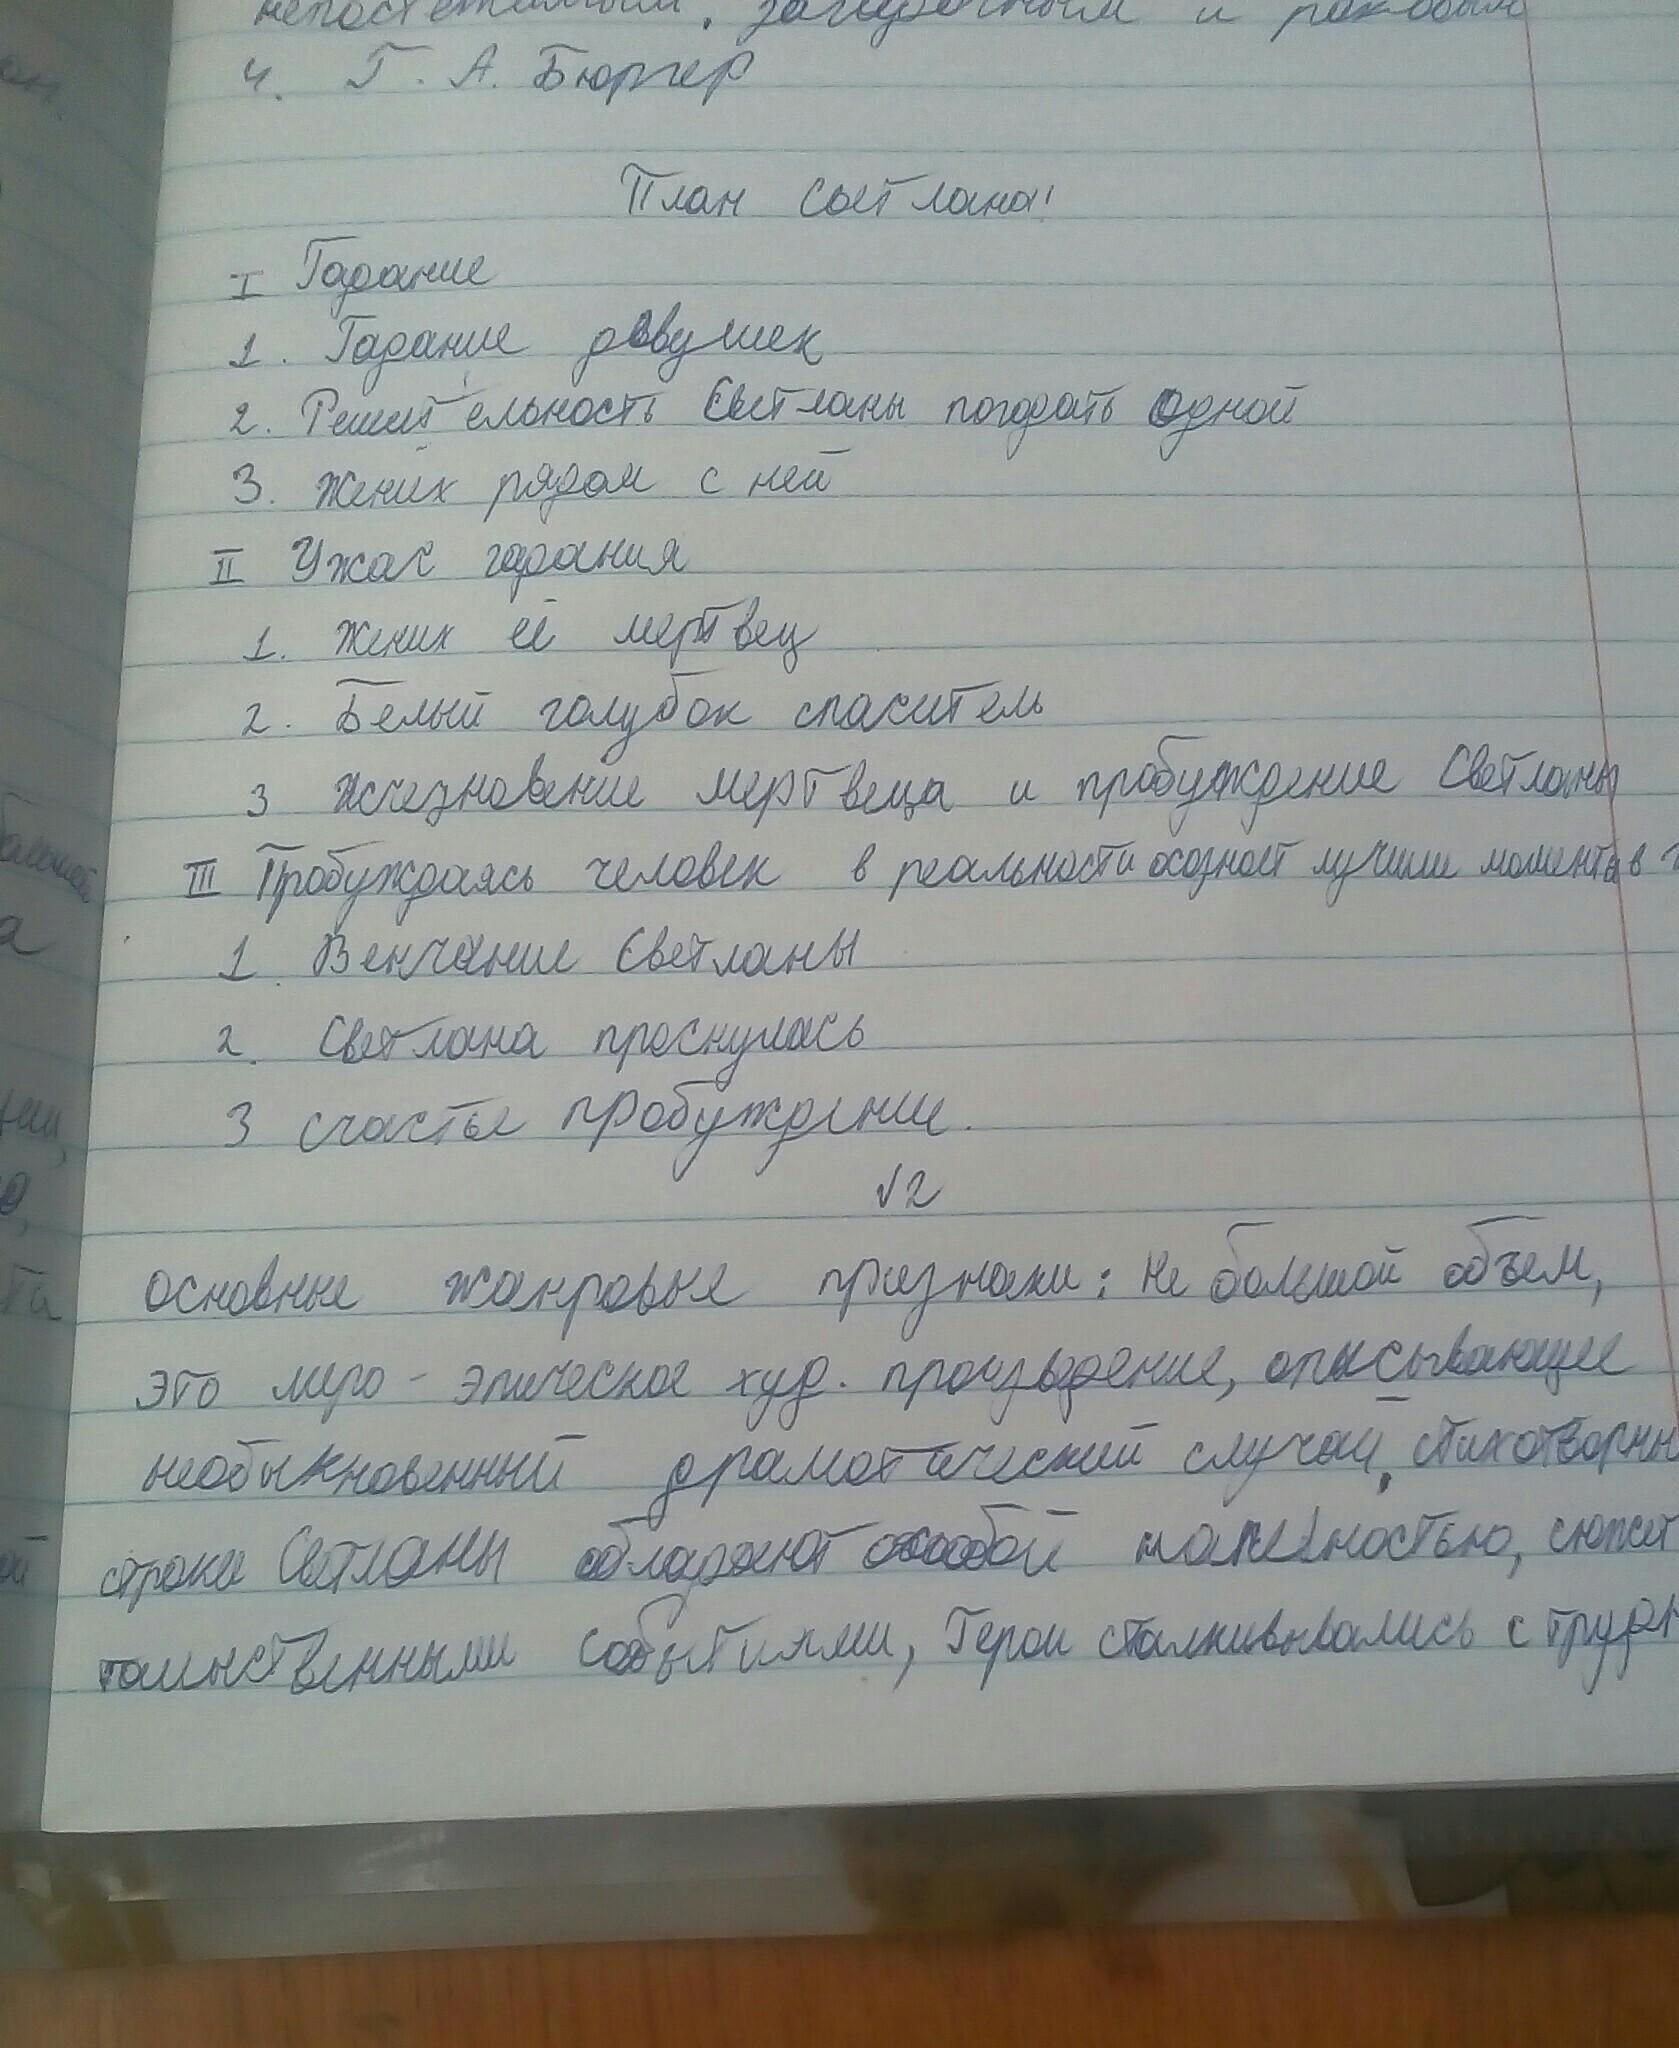 непостежимым, загадочным и роковым
4. Г. А. Бюргер
План Светлана"
I Гадание
1. Гадание девушек
2. Решительность Светланы погадать одной
3. Жених рядом с ней
II Ужас гадания
1. Жених её мертвец
2. Белый голубок спаситель
3 Изчезновение мертвеца и пробуждение Светланы
III Пробуждаясь человек в реальности осознаёт лучшие моменты в
1. Венчание Светланы
2. Светлана проснулась
3 счастье пробуждение.
√2
основные жанровые признаки: не большой объем,
это лиро-эпическое худ. произведение, описывающее
необыкновенный драматический случай. стихотворны
строки Светланы обладают особой напевностью, сюжет
таинственными событиями, Герои сталкивывались с трудн